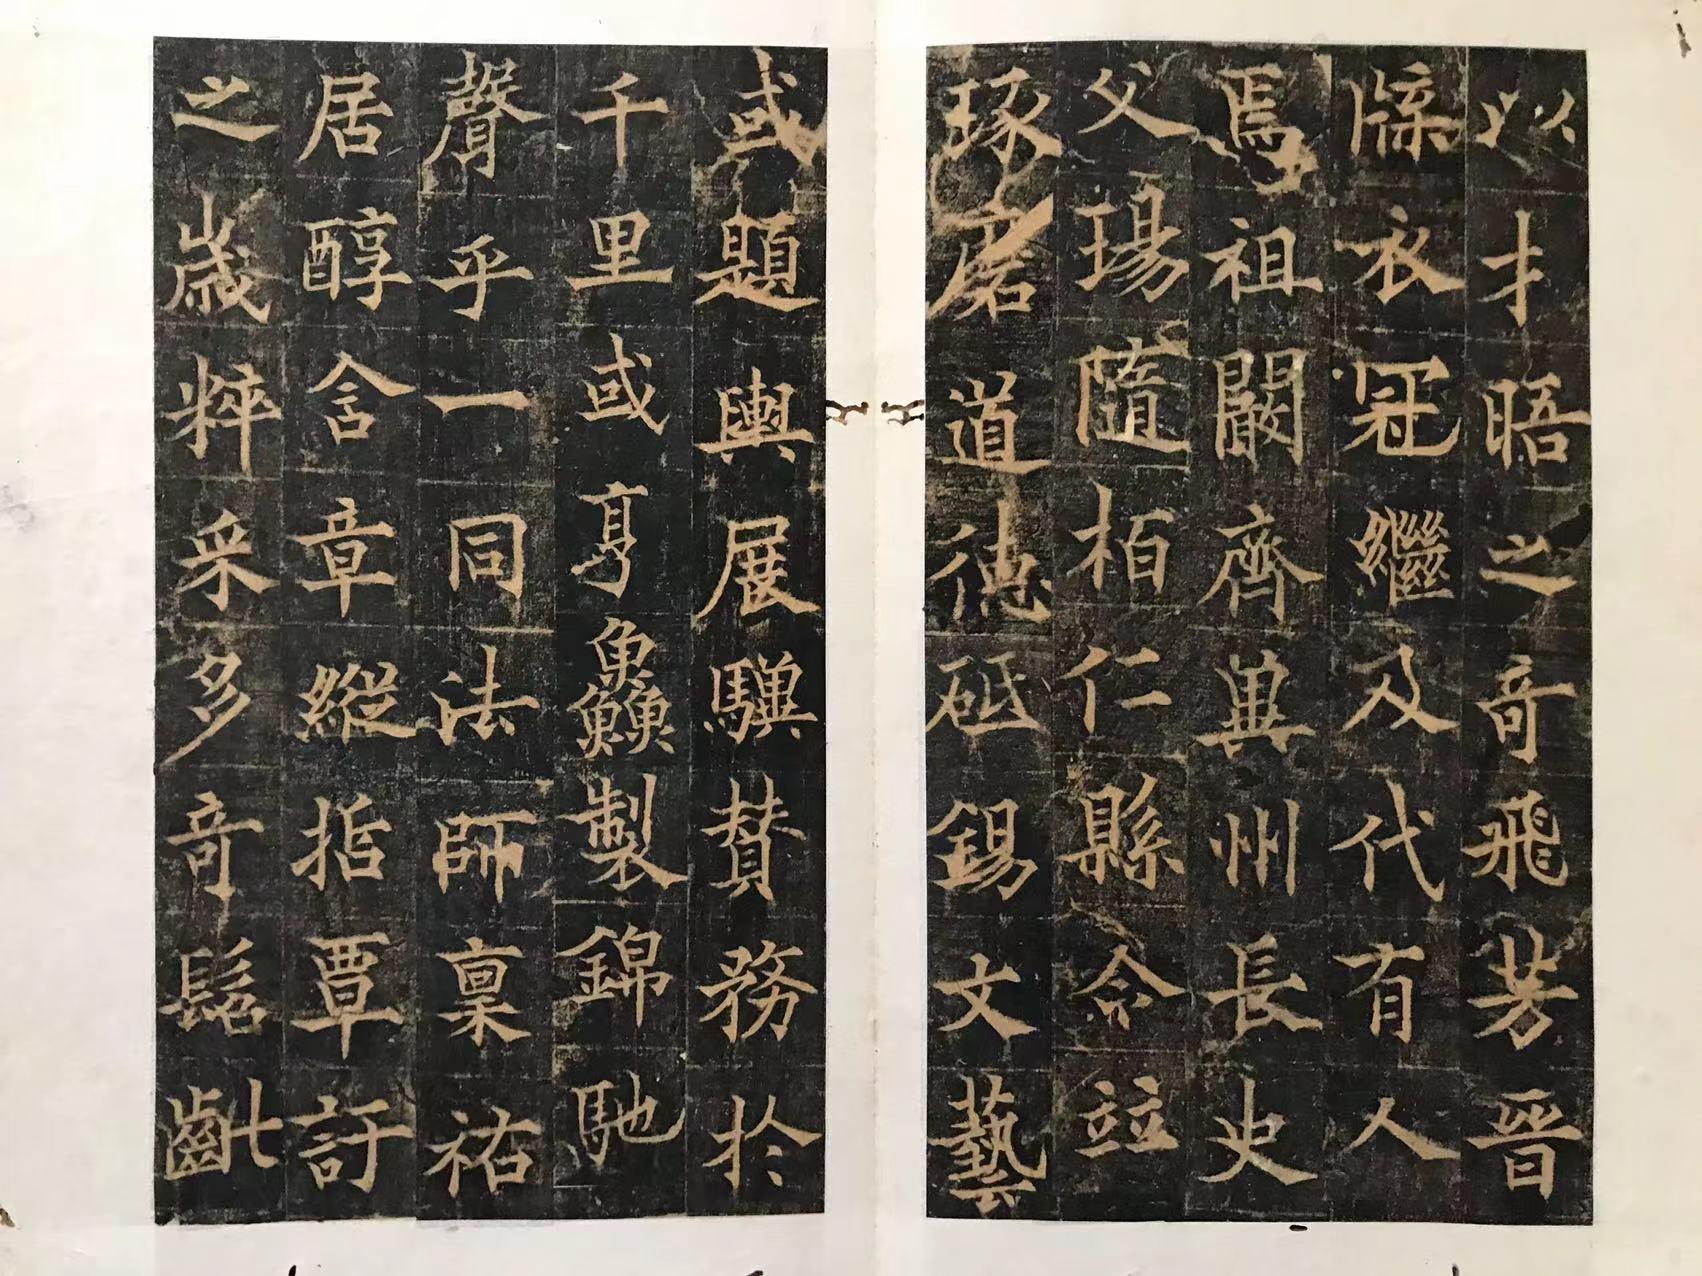 以才晤之奇飛芳晉
牒衣冠繼及代有人
焉祖嚴齊兾州長史
父瑒隨栢仁縣令竝
琢磨道德砥錫文藝
或題輿展驥賛務於
千里或亨鱻製錦馳
聲乎一同法師稟祐
居醇含章縱指覃訏
之歲粹采多奇髫齔